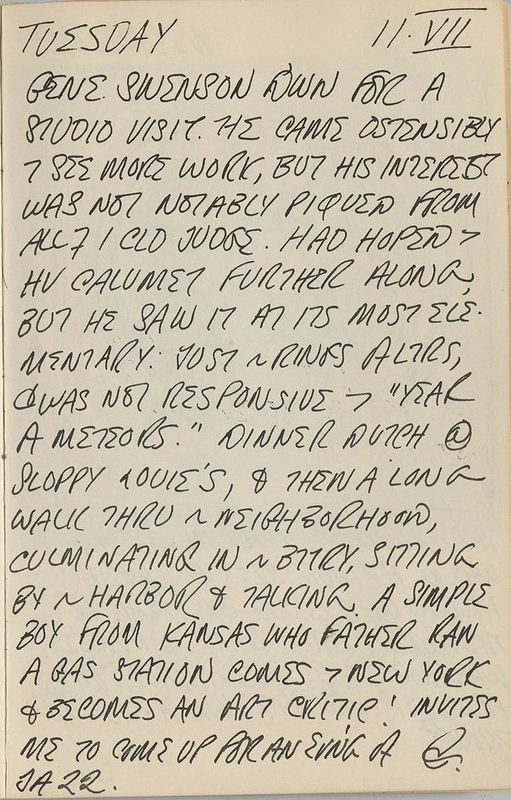 TUESDAY 11·VII
GENE SWENSON DOWN FOR A
STUDIO VISIT. HE CAME OSTENSIBLY
7 SEE MORE WORK, BUT HIS INTEREST
WAS NOT NOTABLY PIQUED FROM
ALL 7 I CLD JUDGE. HAD HOPED >
HV CALUMET FURTHER ALONG,
BUT HE SAW IT AT ITS MOST ELE-
MENTARY: JUST ~ RINGS & LTRS,
& WAS NOT RESPONSIVE > "YEAR
A METEORS." DINNER DUTCH @
SLOPPY LOUIE'S, & THEN A LONG
WALK THRU ~ NEIGHBORHOOD,
CULMINATING IN ~ BTTRY, SITTING
BY ~ HARBOR & TALKING. A SIMPLE
BOY FROM KANSAS WHO FATHER RAN
A GAS STATION COMES > NEW YORK
& BECOMES AN ART CRITIC! INVITES
ME TO COME UP FOR AN EVING A
JAZZ.